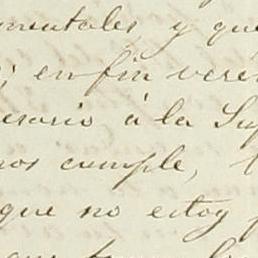 mentales, y que
en fin veré
esario á la Su
nos cumple,
que no estoy